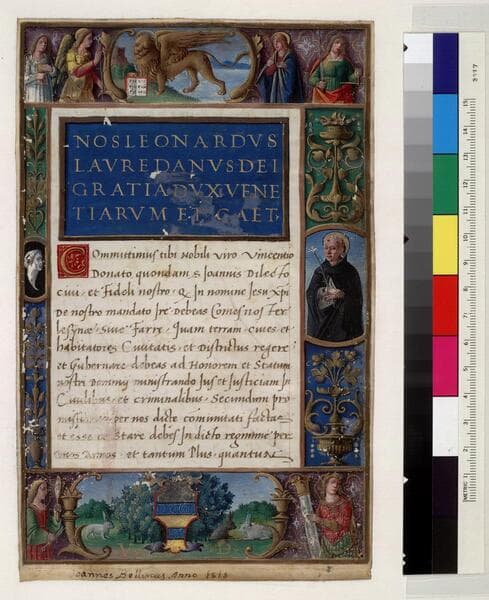 NOS LEONARDVS
LAVREDANVS DEI
GRATIA DVX VENE
TIARVM ET C AET
Committimus tibi Nobili viro Vincentio
Donato quondam s Joannis Dilecto
civi et Fideli nostro Q In nomine Jesu Xpi
De nostro mandato Ire Debeas Comes nos Ter
Farre Quam terram cives et
habitatores Civitatis et Districtus regere
et Gubernare debeas ad Honorem et Statum
nostri Dominij ministrando Jus et Justiciam In
Civilibus et criminalibus Secundum pro
per nos dicte comunitati factas
et esse et Stare debes In dicto regimine per
et tantum Plus quantum
V D
Joannes Bellinus Anno 1513